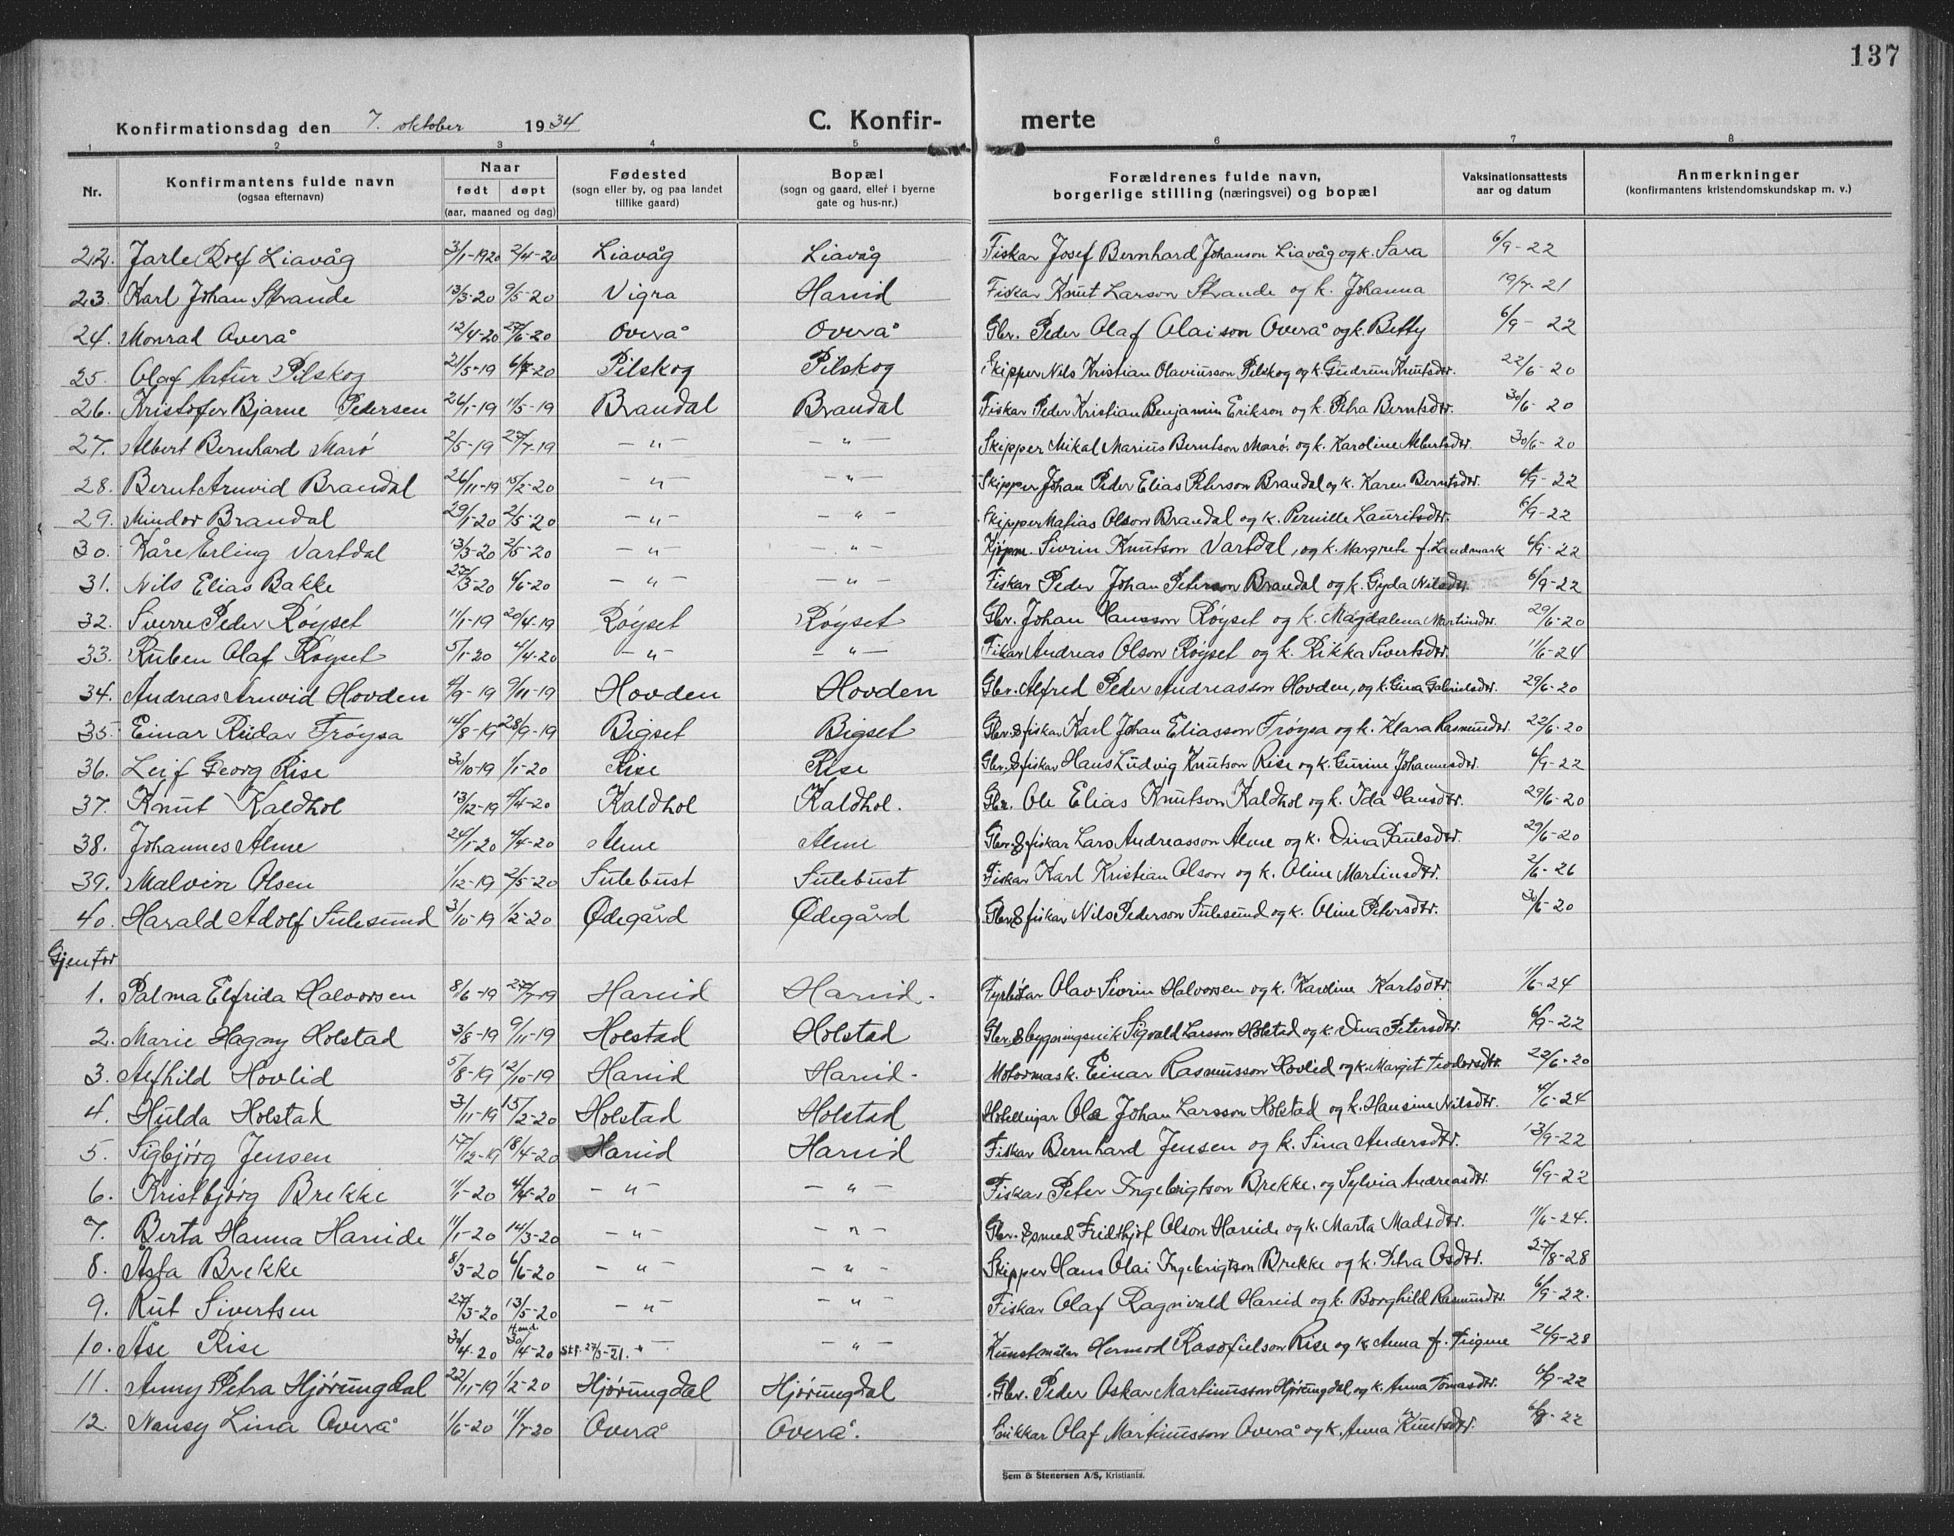 137
Konfirmationsdag den 7. oktober 1934 C. Konfir- merte
1 2 3 4 5 6 7 8
Nr. Konfirmantens fulde navn (ogsaa efternavn) Naar født døpt (aar, maaned og dag) Fødested (sogn eller by, og paa landet tillike gaard) Bopæl (sogn og gaard, eller i byerne gate og hus-nr.) Forældrenes fulde navn, borgerlige stilling (næringsvei) og bopæl Vaksinationsattests aar og datum Anmerkninger (konfirmantens kristendomskundskap m. v.)
22. Jarle Rolf Liavåg 3/1-1920 2/4-20 Liavåg Liavåg Fiskar Josef Bernhard Johanson Liavåg og k. Sara 6/9-22
23. Karl Johan Strande 13/3-20 9/5-20 Vigra Hareid Fiskar Knut Larson Strande og k. Johanna 19/7-21
24. Monrad Overå 12/4-20 27/6-20 Overå Overå Gbr. Peder Olaf Olaison Overå og k. Betty 6/9-22
25. Olaf Artur Pilskog 21/5-19 20 Pilskog Pilskog Skipper Nils Kristian Olaviusson Pilskog og k. Gudrun Knutsdtr. 22/6-20
26. Kristofer Bjarne Petersen 26/1-19 11/5-19 Brandal Brandal Fiskar Peder Kristian Benjamin Erikson og k. Petra Berntsdtr. 30/6-20
27. Albert Bernhard Marø 2/5-19 27/7-19 — " — — " — Skipper Mikal Marius Berntson Marø. og k. Karoline Albertsdtr. 30/6-20
28. Bernt Arnvid Brandal 26/11-19 15/2-20 — " — — " — Skipper Johan Peder Elias Peterson Brandal og k. Karen Berntsdtr. 6/9-22
29. Mindor Brandal 29/1-20 2/5-20 — " — — " — Skipper Matias Olson Brandal og k. Pernille Lauritsdtr. 6/9-22
30. Kåre Erling Vartdal 13/3-20 2/5-20 — " — — " — Kjøpm. Sivrin Knutson Vartdal, og k. Margrete f. Landmark 6/9-22
31. Nils Elias Bakke 27/3-20 4/6-20 — " — — " — Fiskar Peder Johan Peterson Brandal og k. Gyda Nilsdtr. 6/9-22
32. Sverre Peder Røyset 11/1-19 20/4-19 Røyset Røyset Gbr. Johan Hansson Røyset og k. Magdalena Martinsdtr. 29/6-20
33. Ruben Olaf Røyset 5/1-20 4/4-20 — " — — " — Fiskar Andreas Olson Røyset og k. Rikka Sivertsdtr. 11/6-24
34. Andreas Arnvid Hovden 4/9-19 9/11-19 Hovden Hovden Gbr. Alfred Peder Andreasson Hovden, og k. Gina Gabrielsdtr. 29/6-20
35. Einar Reidar Frøysa 14/8-19 28/9-19 Bigset Bigset Gbr. & fiskar Karl Johan Eliasson Frøysa og k. Klara Rasmusdtr. 22/6-20
36. Leif Georg Rise 30/10-19 1/1-20 Rise Rise Gbr. & fiskar Hans Ludvig Knutson Rise og k. Gurine Johannesdtr. 6/9-22
37. Knut Kaldhol 13/12-19 4/4-20 Kaldhol Kaldhol. Gbr. Ole Elias Knutson Kaldhol og k. Ida Hansdtr. 29/6-20
38. Johannes Alme 24/1-20 4/4-20 Alme Alme Gbr. & fiskar Lars Andreasson Alme og k. Dina Paulsdtr. 29/6-20
39. Malvin Olsen 1/12-19 2/5-20 Sulebust Sulebust Fiskar Karl Kristian Olson og k. Oline Martinsdtr. 2/6-26
40. Harald Adolf Sulesund 3/10-19 1/2-20 Ødegård Ødegård Gbr. & fiskar Nils Pederson Sulesund og k. Oline Petersdtr. 30/6-20
Gjentor
1. Palma Elfrida Halvorsen 8/6-19 27/7-19 Hareid Hareid. Olav Sivrin Halvorsen og k. Karoline Karlsdtr. 11/6-24
2. Marie Hagny Holstad 3/8-19 9/11-19 Holstad Holstad Gbr. & bygningssnik Sigvald Larsson Holstad og k. Dina Petersdtr. 6/9-22
3. Alfhild Hovlid 5/8-19 12/10-19 Hareid Hareid. Motormask. Einar Rasmusson Hovlid og k. Margit Teodorsdtr. 22/6-20
4. Hulda Holstad 3/11-19 15/2-20 Holstad Holstad Hotelleigar Ole Johan Larsson Holstad og k. Hansine Nilsdtr. 4/6-24
5. Sigbjørg Jensen 17/12-19 18/4-20 Hareid Hareid Fiskar Bernhard Jensen og k. Sina Andersdtr. 13/9-22
6. Kristbjørg Brekke 11/1-20 4/4-20 — " — — " — Fiskar Peter Ingebrigtson Brekke. og Sylvia Andreasdtr. 6/9-22
7. Berta Hanna Hareide 11/1-20 14/3-20 — " — — " — Gbr. & smed Fridthjof Olson Hareide og k. Marta Madsdtr. 11/6-24.
8. Asta Brekke 8/3-20 6/6-20 — " — — " — Skipper Hans Olai Ingebrigtson Brekke og k. Petra Osdtr. 27/8-28
9. Rut Sivertsen 27/3-20 13/5-20 — " — — " — Fiskar Olaf Ragnvald Hareid og k. Borghild Rasmusdtr. 6/9-22.
10. Åse Rise 30/4-20 30/4-20 21. " — — " — Kunstmålar Hermod Rasofielson Rise og k. Anna f. 28
11. Anny Petra Hjørungdal 22/11-19 1/2-20 Hjørungdal Hjørungdal Gbr. Peder Oskar Martinusson Hjørungdal og k. Anna Tomasdtr. 6/9-22
12. Nansy Lina Overå 1/6-20 11/7-20 Overå Overå. Olaf Martinusson Overå og k. Anna Knutsdtr. 22
Sem & Stenersen A/S, Kristiania.